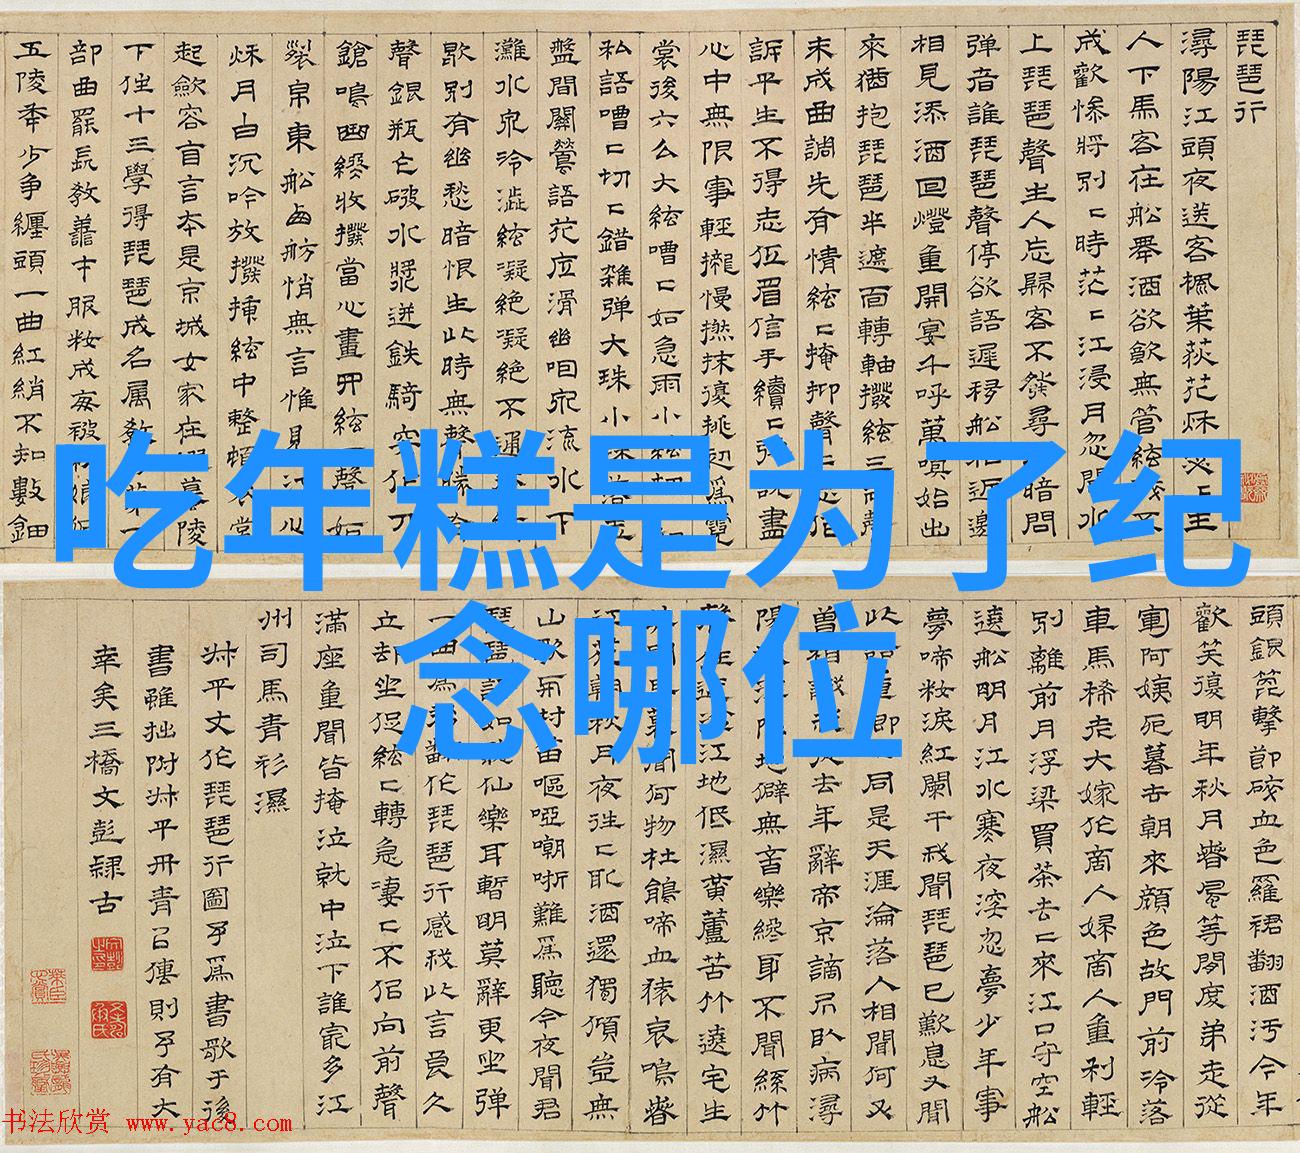 琵琶行
潯陽江頭夜送客楓葉荻花秌瑟〻主
人下馬客在船舉酒欲飲無管絃
成歡慘將別〻時茫〻江浸月忽聞水
上琵琶聲主人忘歸客不發尋聲暗問
彈者誰琵琶聲停欲語遲移船相近邀
相見添酒回燈重開宴千呼萬喚始出
來猶抱琵琶半遮面轉軸撥絃三
未成曲調先有情絃〻掩抑聲
訴平生不得志低眉信手續〻彈說盡
心中無限事輕攏慢撚抹復挑初爲霓
裳後六么大絃嘈〻如急雨小絃切
私語嘈〻切〻錯雜弹大珠小珠落玉
盤間關鶯語花底滑幽咽泉流水下
灘水泉冷澁絃凝絕凝絕不通
歇別有幽愁暗恨生此時無聲勝有
聲銀瓶乍破水漿迸鉄騎突出刀
鎗鳴曲終收撥當心畫四絃一聲如
裂帛東船西舫悄無言惟見江心
秌月白沉吟放撥揷絃中整頓衣裳
起斂容自言本是京城女家在蟇陵
下住十三學得琵琶成名属教第一
部曲罷長教善才服妝成每被
五陵年少争纏頭一曲紅綃不知數鈿
吃年糕是为了纪
念哪位
頭銀篦擊節碎血色羅裙翻酒汚今年
歡笑復明年秋月春風等閒度弟走從
軍阿姨死暮去朝來顏色故門前冷落
車馬稀老大嫁作商人婦商人重利輕
別離前月浮梁買茶去〻來江口守空船
遶船明月江水寒夜深忽夢少年事
夢啼妝淚紅闌干我聞琵琶已歎息又聞
此語重即同是天涯淪落人相聞何必
曾相識我從去年辭帝京謫居臥病潯
陽地僻無音樂終歲不聞絲竹
江地低濕黃蘆苦竹遶宅生
聞何物杜鵑啼血猿哀鳴春
江花朝秋月夜往〻取酒還獨傾豈無
山歌與村笛嘔啞嘲哳難爲聽今夜聞君
琵琶語如聽仙樂耳暫明莫辭更坐彈
一曲爲君翻作琵琶行感我此言良久
立却坐促絃〻轉急凄〻不侣向前聲
滿座重聞皆掩泣就中泣下誰㝡多江
州司馬青衫濕
林平丈作琵琶行圖予爲書歌于後
書雖拙附林平丹青㠯傳則予有大
幸矣三橋文彭隸古
书法欣赏 www.yac8.com